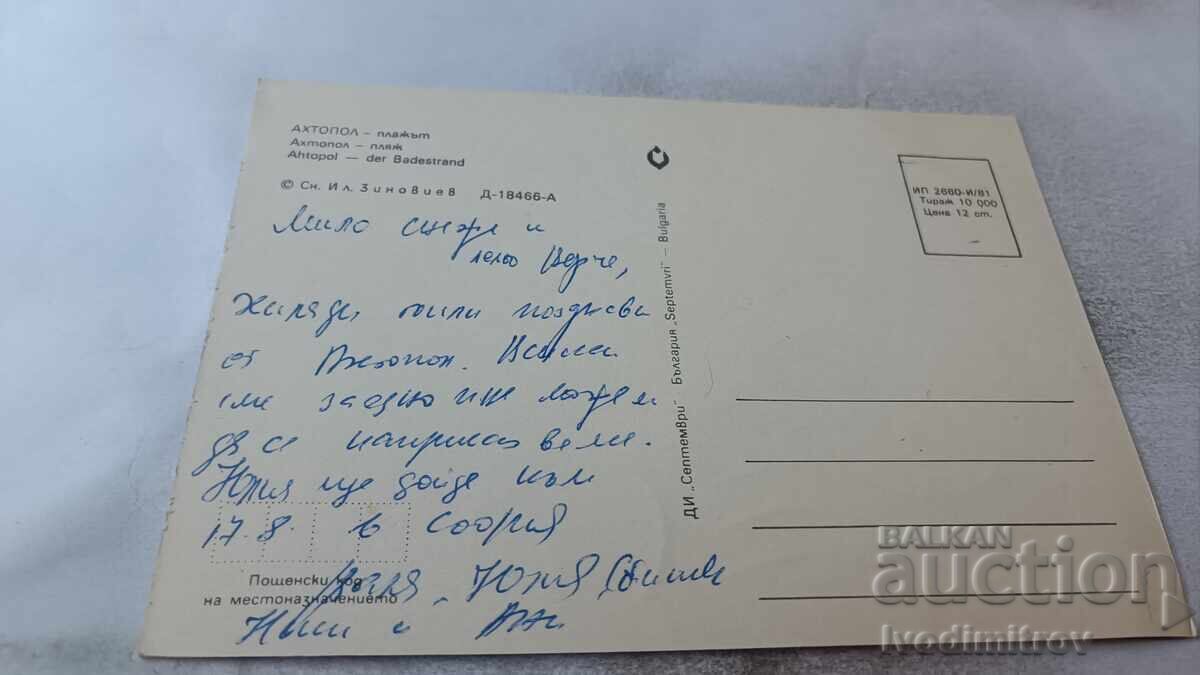 АХТОПОЛ – плажът
Ахтопол – пляж
Ahtopol — der Badestrand
© Сн. Ил. Зиновиев Д-18466-А
ИП 2660-И/81
Тираж 10 000
Цена 12 ст.
ДИ „Септември" България „Septemvri" — Bulgaria
Мило и
лельо
Хиляди поздрави
от Ахтопол.
сме заедно и не можем
да се
Юлия ще дойде към
17.8. в София
Юлия
и
Пощенски код
на местоназначението
BALKAN
auction
Ivodimitrov